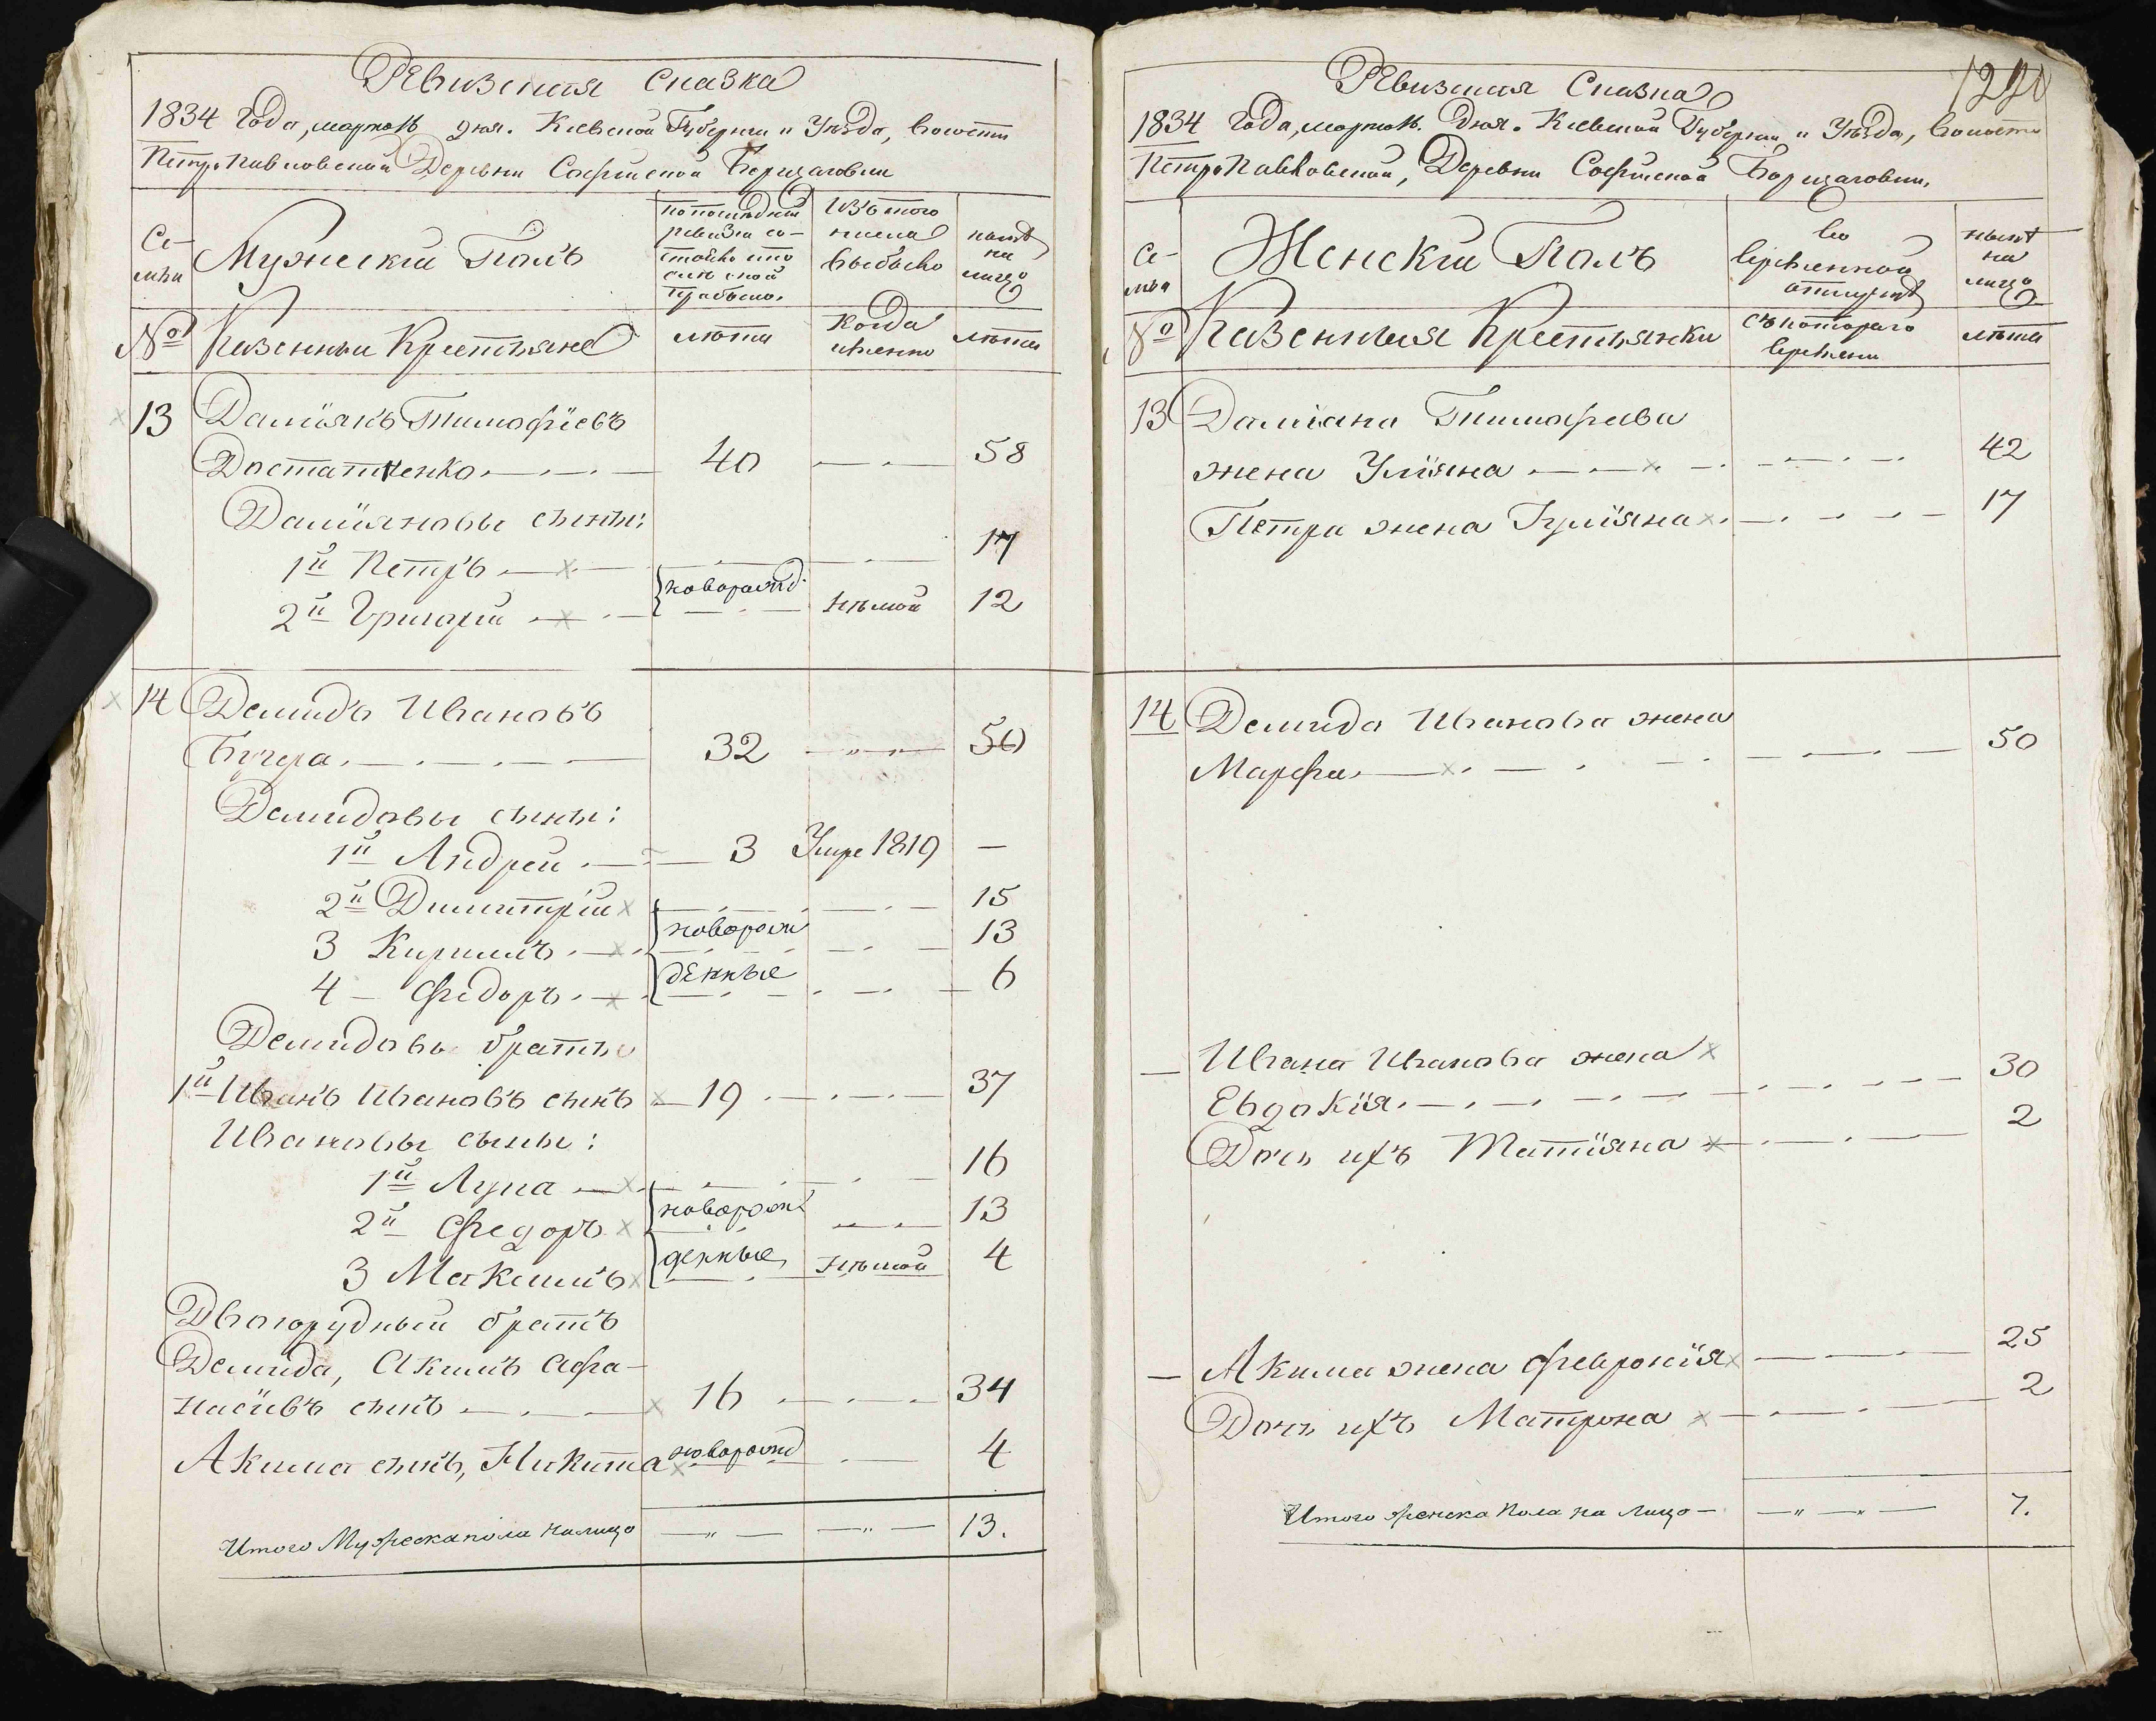 Ревизская Сказка
1834 Года, марта дня. Киевской Губернии и Уѣзда, Волости
Петропавловской Деревни Софійской Борщаговки
Се-
мьи
Мужескій Полъ
по послѣдней
ревизіи со-
стояло и по
слѣ оной
прибыло.
Изъ того
числа
выбыло
нынѣ
на
лицо
№
Казенныи Крестьяне
лѣта
Когда
именно
лѣта
13 Даміянъ Тимофіевъ
Достатченко 40 58
Даміяновы сыны:
1й Петръ 17
новорожд.
2й Григорій нѣмой 12
14 Демидъ Ивановъ
Бугера 32 50
Демидовы сыны:
1й Андрей 3 Умре 1819 —
2й Димитрій 15
3 Кириллъ новорож 13
4 — Федоръ денные 6
Демидовы братья
1й Иванъ Ивановъ сынъ 19 37
Ивановы сыны:
1й Лука 16
2й Федоръ новорож 13
3 Максимъ денные нѣмой 4
Двоюрудный братъ
Демида, Акимъ Афа-
насіевъ сынъ 16 34
Акима сынъ, Никита новорожд 4
Итого Мужеска пола на лицо 13.
Ревизская Сказка
1834 Года, марта. Дня. Киевской Губернии, и Уѣзда, Волости
Петропавловской, Деревни Софійской Борщаговки.
Се-
мьи
Женскій Полъ
во
временной
отлучкѣ
нынѣ
на
лицо
№
Казенныя Крестьянки
съ котораго
времени
лѣта
13 Даміана Тимофеева
жена Уліяна 42
Петра жена Іуліяна 17
14 Демида Иванова жена
Марфа 50
— Ивана Иванова жена
Евдокія 30
Дочь ихъ Татіяна 2
— Акима жена Февронія 25
Дочь ихъ Матрона 2
Итого женска пола на лицо — 7.